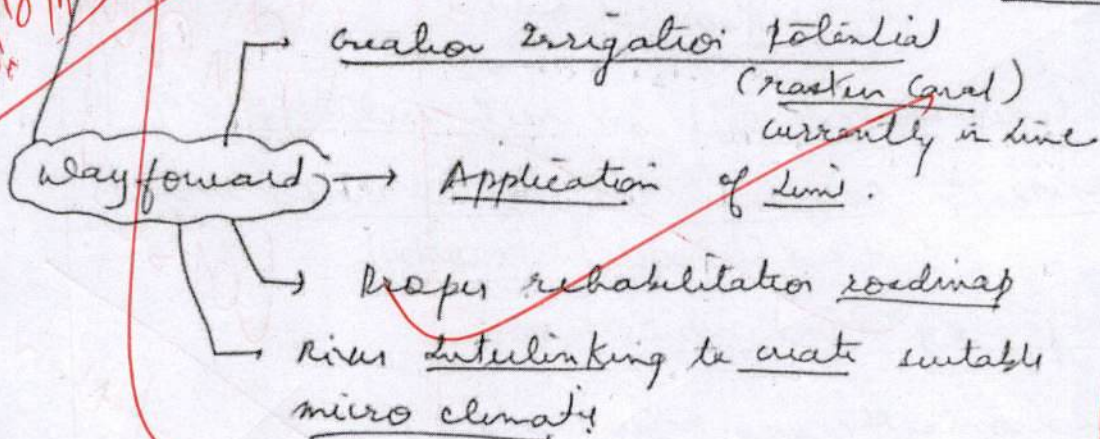 creation Irrigation potential
(Eastern Canal)
currently in line
Way forward → Application of Lime.
Proper rehabilitation roadmap
River Interlinking to create suitable
micro climate